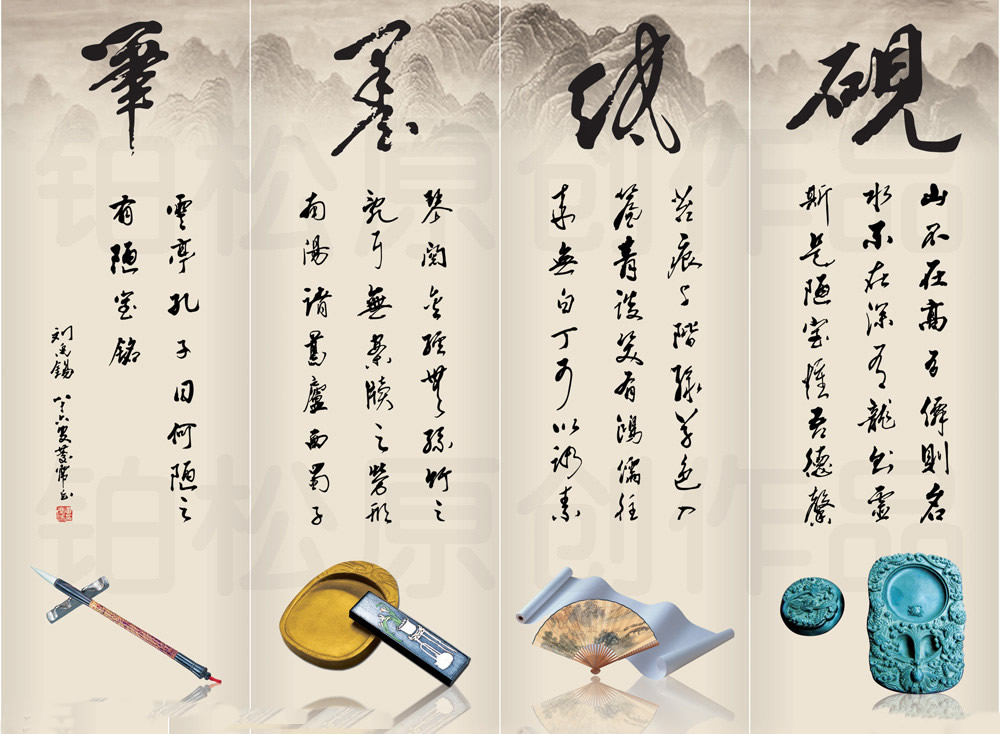 硯
山不在高有僊則名
水不在深有龍則靈
斯是陋室惟吾德馨
紙
苔痕上階綠草色入
簾青談笑有鴻儒往
来無白丁可以調素
墨
琴閱金經無絲竹之
亂耳無案牘之勞形
南陽諸葛廬西蜀子
筆
雲亭孔子曰何陋之
有陋室銘
刘禹錫
铂松原创作品
铂松原创作品